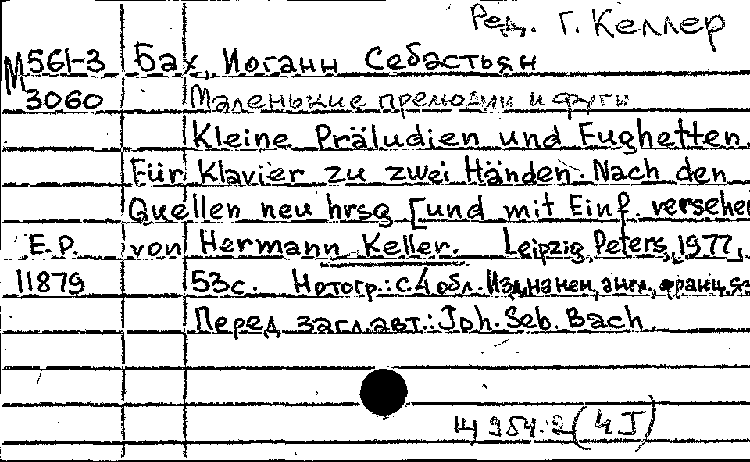 Ред. Г. Келлер
М561-3 Бах, Иоганн Себастьян
3060 Маленькие прелюдии и фуги
Kleine Präludien und Fughetten.
Für Klavier zu zwei Händen. Nach den
Quellen neu hrsg [und mit Einf. versehen
E.P. von Hermann Keller. Leipzig, Peters, 1977,
11879 53с. Нотогр.: с 4 обл. Изд. на нем, англ., франц. яз
Перед загл. авт.: Joh. Seb. Bach.
Ц 954.2 (4 J)